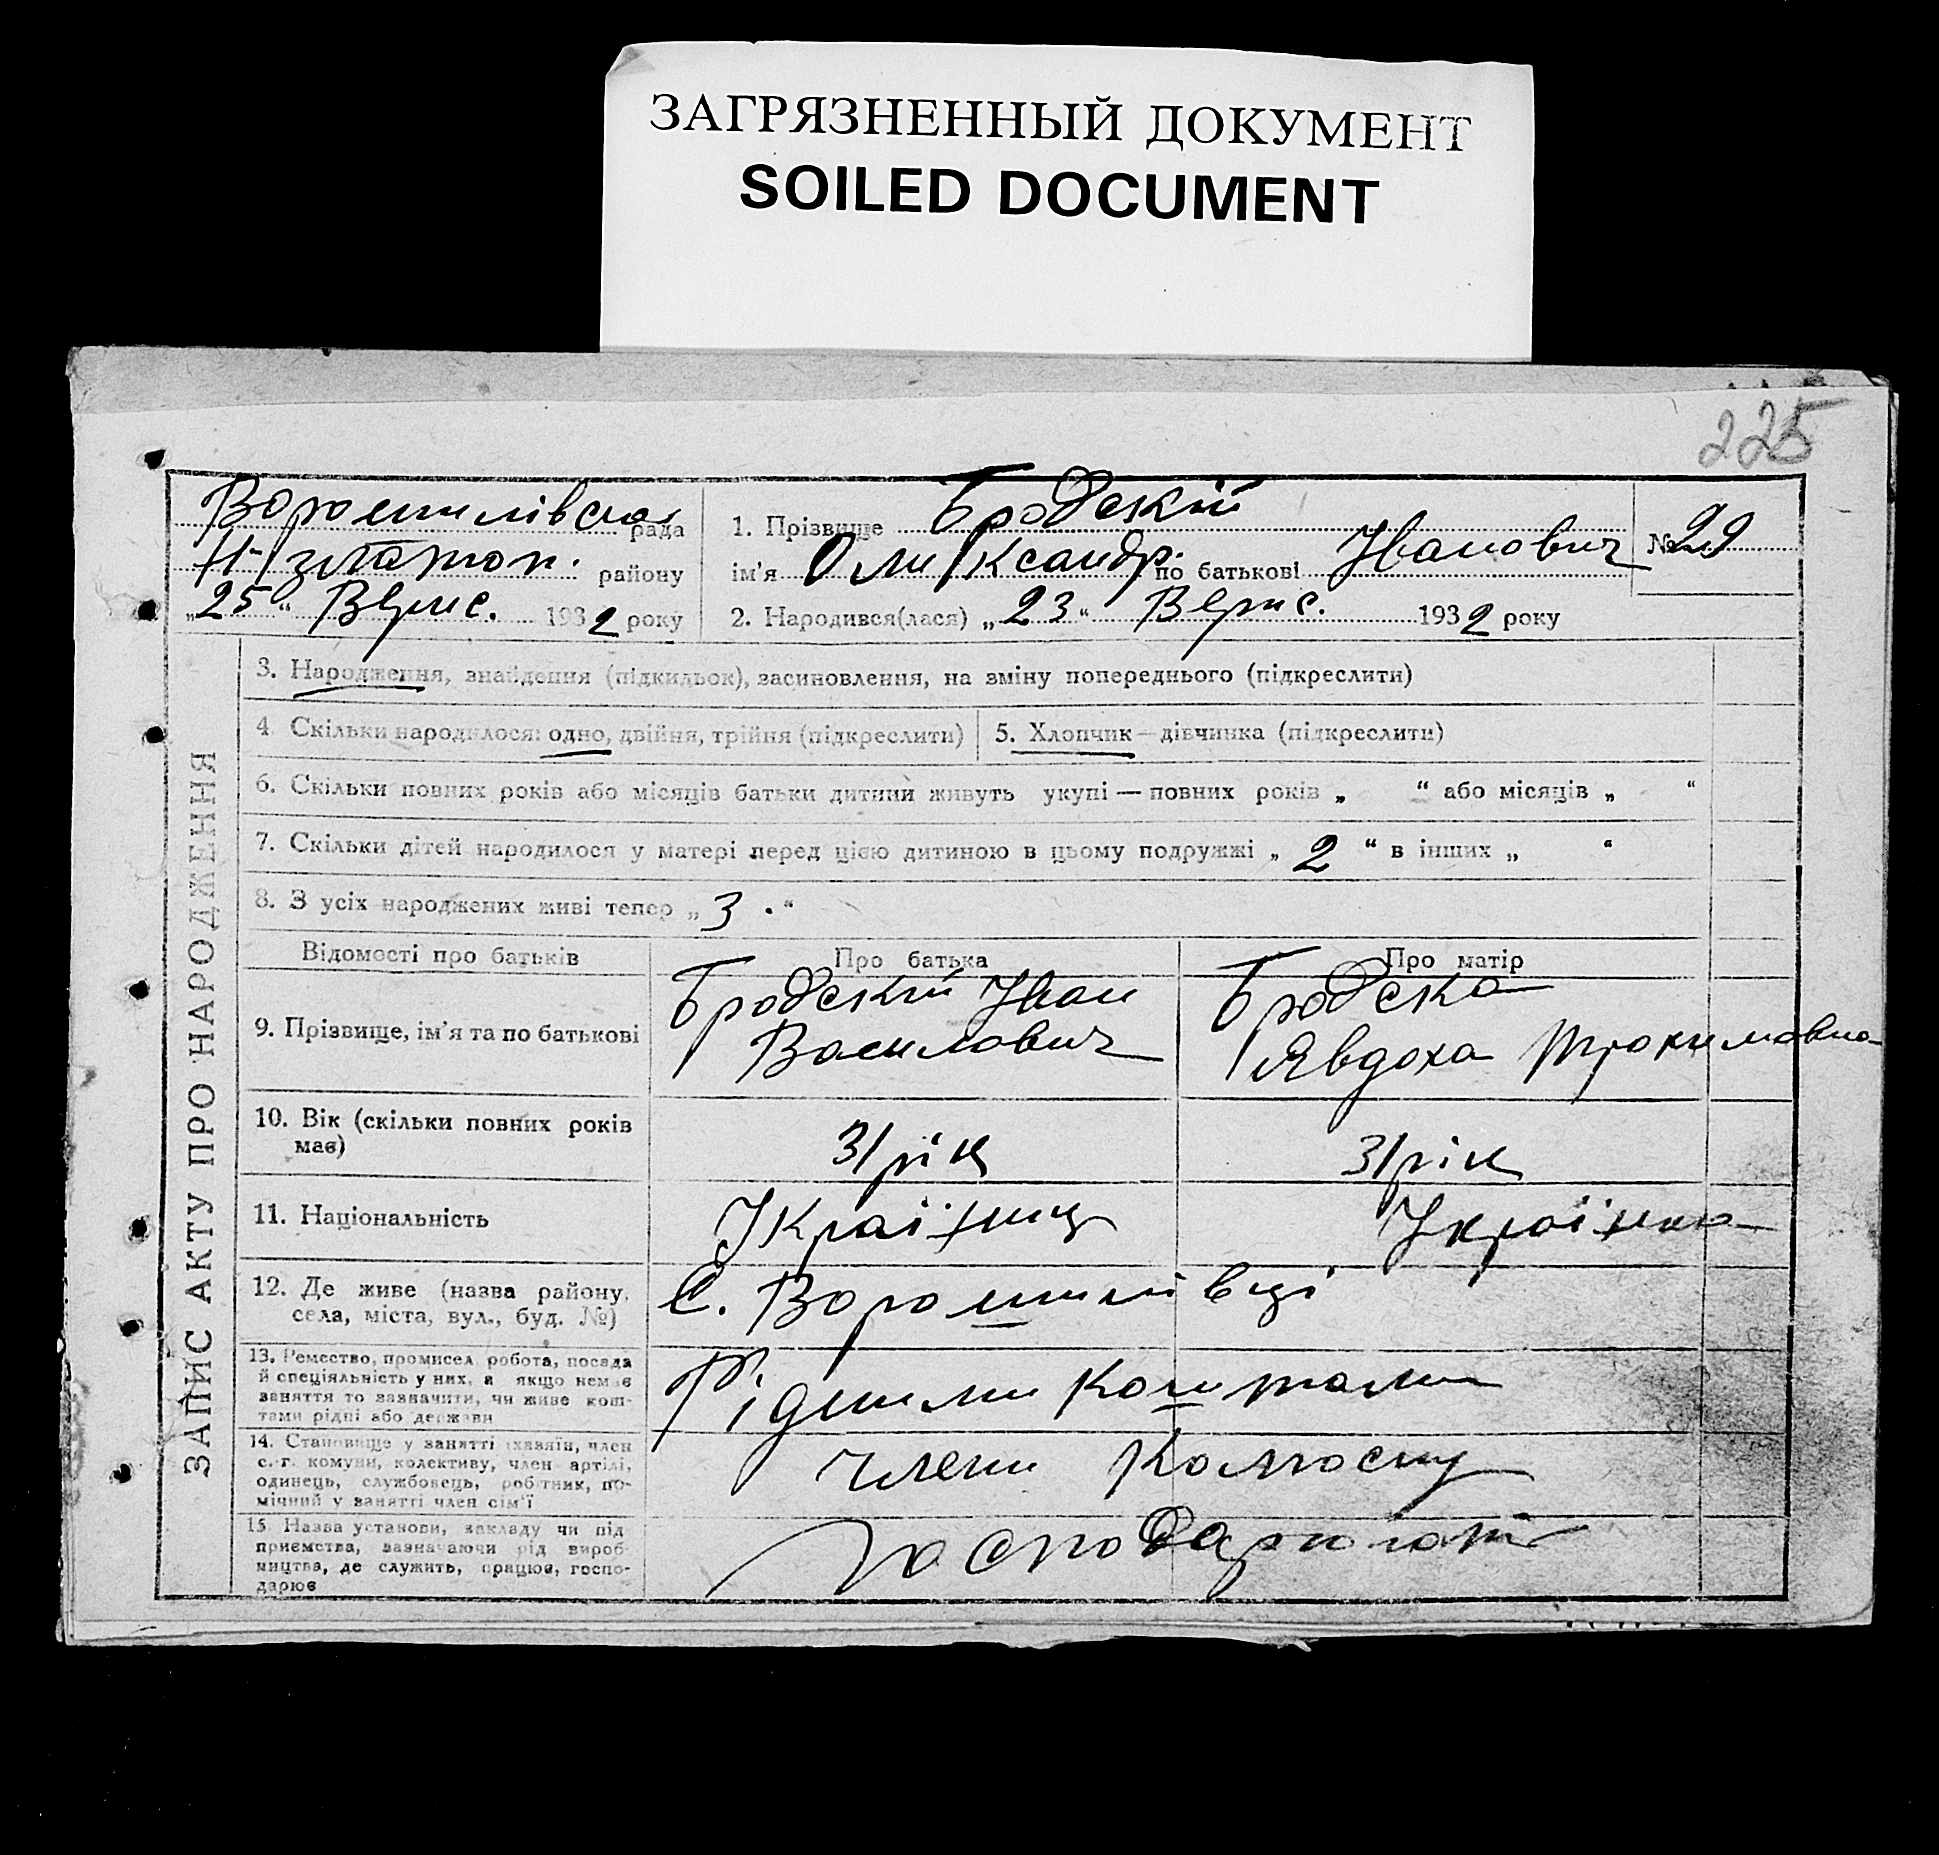 ЗАГРЯЗНЕННЫЙ ДОКУМЕНТ
SOILED DOCUMENT
225
Ворошилівська рада
Н-Златоп. району
„25“ Верис. 1932 року
1. Прізвище Бродский
ім'я Олександр. по батькові Іванович
№ 29
2. Народився(лася) „23“ Верис. 1932 року
ЗАПИС АКТУ ПРО НАРОДЖЕННЯ
3. Народження, знайдення (підкидьок), засиновлення, на зміну попереднього (підкреслити)
4 Скільки народилося: одно, двійня, трійня (підкреслити)
5. Хлопчик — дівчинка (підкреслити)
6. Скільки повних років або місяців батьки дитини живуть укупі — повних років „ “ або місяців „ “
7. Скільки дітей народилося у матері перед цією дитиною в цьому подружжі „ 2 “ в інших „ “
8. З усіх народжених живі тепер „ 3 . “
Відомості про батьків
Про батька
Про матір
9. Прізвище, ім'я та по батькові
Бродский Іван
Василович
Бродска
Явдоха Трохимовна
10. Вік (скільки повних років
має)
31 рік
31 рік
11. Національність
Українец
Українка
12. Де живе (назва району,
села, міста, вул., буд. №)
С. Ворошилівці
13. Ремество, промисел робота, посада
й спеціяльність у них, а якщо немає
заняття то зазначити, чи живе кош-
тами рідні або держави
Рідними коштами
14. Становище у занятті хазяїн, член
с.-г. комуни, колективу, член артілі,
одинець, службовець, робітник, по-
мічний у занятті член сім'ї
члени колгоспу
15 Назва установи, закладу чи під
приємства, зазначаючи рід вироб-
ництва, де служить, працює, госпо-
дарює
господарюють